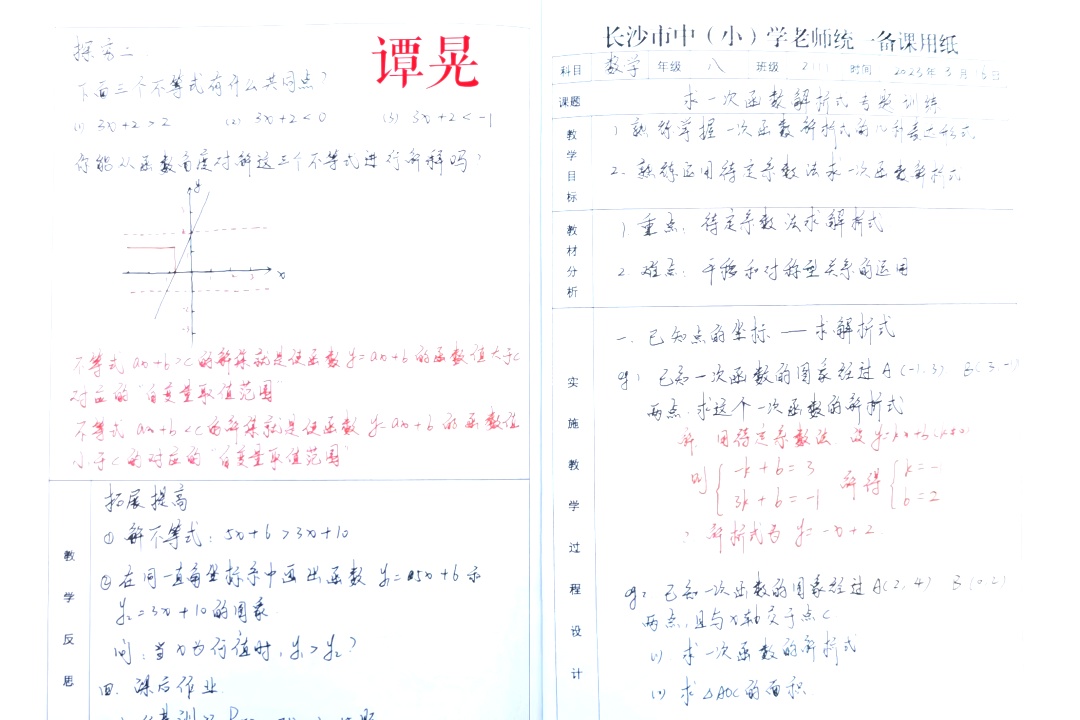 探究二
谭晃
下面三个不等式有什么共同点?
(1) 3x+2>2 (2) 3x+2<0 (3) 3x+2<-1
你能从函数角度对解这三个不等式进行解释吗?
y
x
不等式 ax+b>c的解集就是使函数y=ax+b的函数值大于c
对应的"自变量取值范围"
不等式 ax+b<c的解集就是使函数y=ax+b的函数值
小于c的对应的"自变量取值范围"
教学反思
拓展提高
① 解不等式: 5x+6>3x+10
② 在同一直角坐标系中画出函数 y₁=5x+6和
y₂=3x+10的图象
问:当x为何值时,y₁>y₂?
四.课后作业
长沙市中(小)学老师统一备课用纸
科目 数学 年级 八 班级 时间 2023年3月16日
课题 求一次函数解析式专题训练
教学目标
1) 熟练掌握一次函数解析式的几种表达形式
2. 熟练运用待定系数法求一次函数解析式
教材分析
1) 重点:待定系数法求解析式
2. 难点:平移和对称型关系的运用
实施教学过程设计
一.已知点的坐标 — 求解析式
eg1 已知一次函数的图象经过A(-1,3) B(3,-1)
两点,求这个一次函数的解析式
解:用待定系数法 设y=kx+b(k≠0)
则{-k+b=3 解得{k=-
3k+b=-1 b=2
解析式为 y=-x+2
eg2 已知一次函数的图象经过A(2,4) B(0,2)
两点,且与x轴交于点C
(1) 求一次函数的解析式
(2) 求△AOC的面积